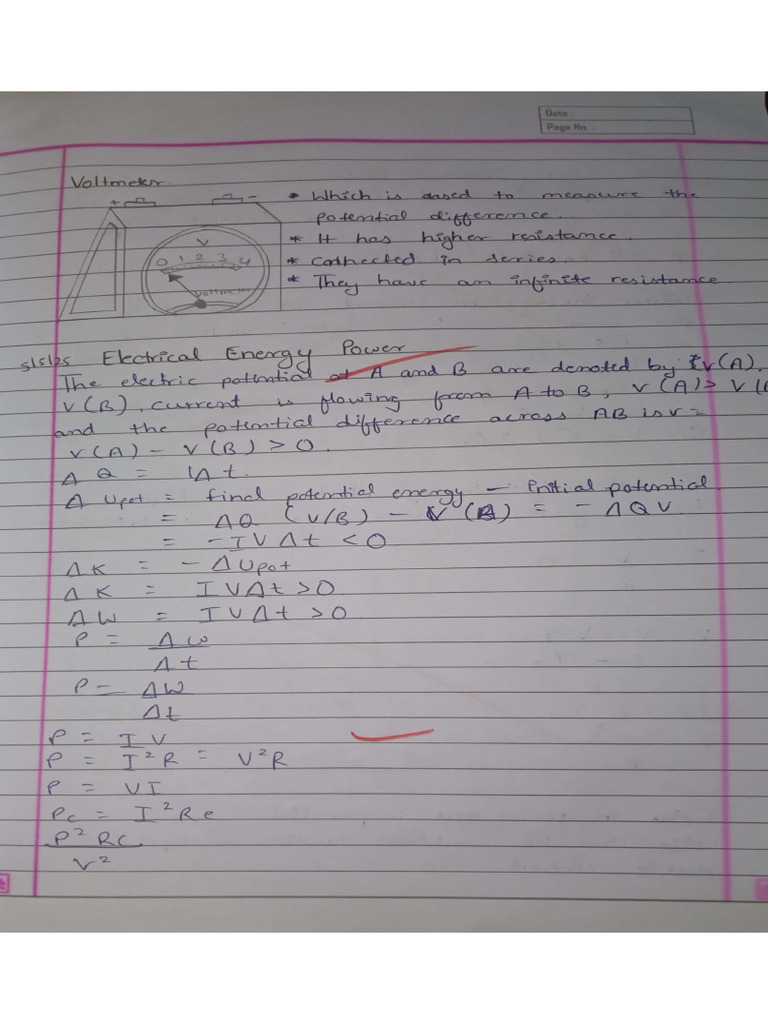 Date :
Page No. :
Voltmeter.
+ -
* Which is used to measure the
potential difference.
* It has higher resistance.
* Connected in series.
* They have an infinite resistance
V
0 1 2 3 4
Voltmeter
5/5/25 Electrical Energy Power
The electric potential at A and B are denoted by V(A),
V(B), current is flowing from A to B, V(A) > V(B
and the potential difference across AB is V =
V(A) - V(B) > 0.
Δ Q = IΔt.
Δ Upot = final potential energy - Initial potential
= ΔQ (V/B) - V (A) = - ΔQV
= -IVΔt < 0
ΔK = - ΔUpot
ΔK = IVΔt > 0
ΔW = IVΔt > 0
P = ΔW
Δt
P = ΔW
Δt
P = IV
P = I²R = V²R
P = VI
Pc = I²Rc
P²RC
V²